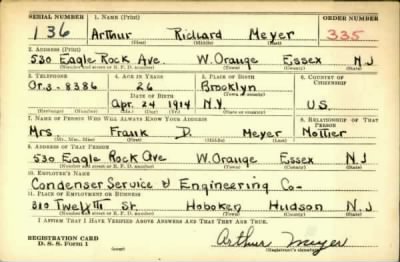 SERIAL NUMBER 1. NAME (Print) ORDER NUMBER
136 Arthur Richard Meyer 335
(First) (Middle) (Last)
2. ADDRESS (Print)
530 Eagle Rock Ave. W. Orange Essex N J
(Number and street or R. F. D. number) (Town) (County) (State)
3. TELEPHONE 4. AGE IN YEARS 5. PLACE OF BIRTH 6. COUNTRY OF CITIZENSHIP
Or. 3-8386 26 Brooklyn
DATE OF BIRTH (Town or county)
Apr. 24 1914 N.Y. U.S.
(Mo.) (Day) (Yr.) (State or country)
7. NAME OF PERSON WHO WILL ALWAYS KNOW YOUR ADDRESS 8. RELATIONSHIP OF THAT PERSON
Mrs Frank D. Meyer Mother
(Mr., Mrs., Miss) (First) (Middle) (Last)
9. ADDRESS OF THAT PERSON
530 Eagle Rock Ave W. Orange Essex N.J
(Number and street or R. F. D. number) (Town) (County) (State)
10. EMPLOYER'S NAME
Condenser Service & Engineering Co-
11. PLACE OF EMPLOYMENT OR BUSINESS
310 Twelfth St. Hoboken Hudson N.J
(Number and street or R. F. D. number) (Town) (County) (State)
I AFFIRM THAT I HAVE VERIFIED ABOVE ANSWERS AND THAT THEY ARE TRUE.
REGISTRATION CARD
D. S. S. Form 1 (over) Arthur Meyer
(Registrant's signature)